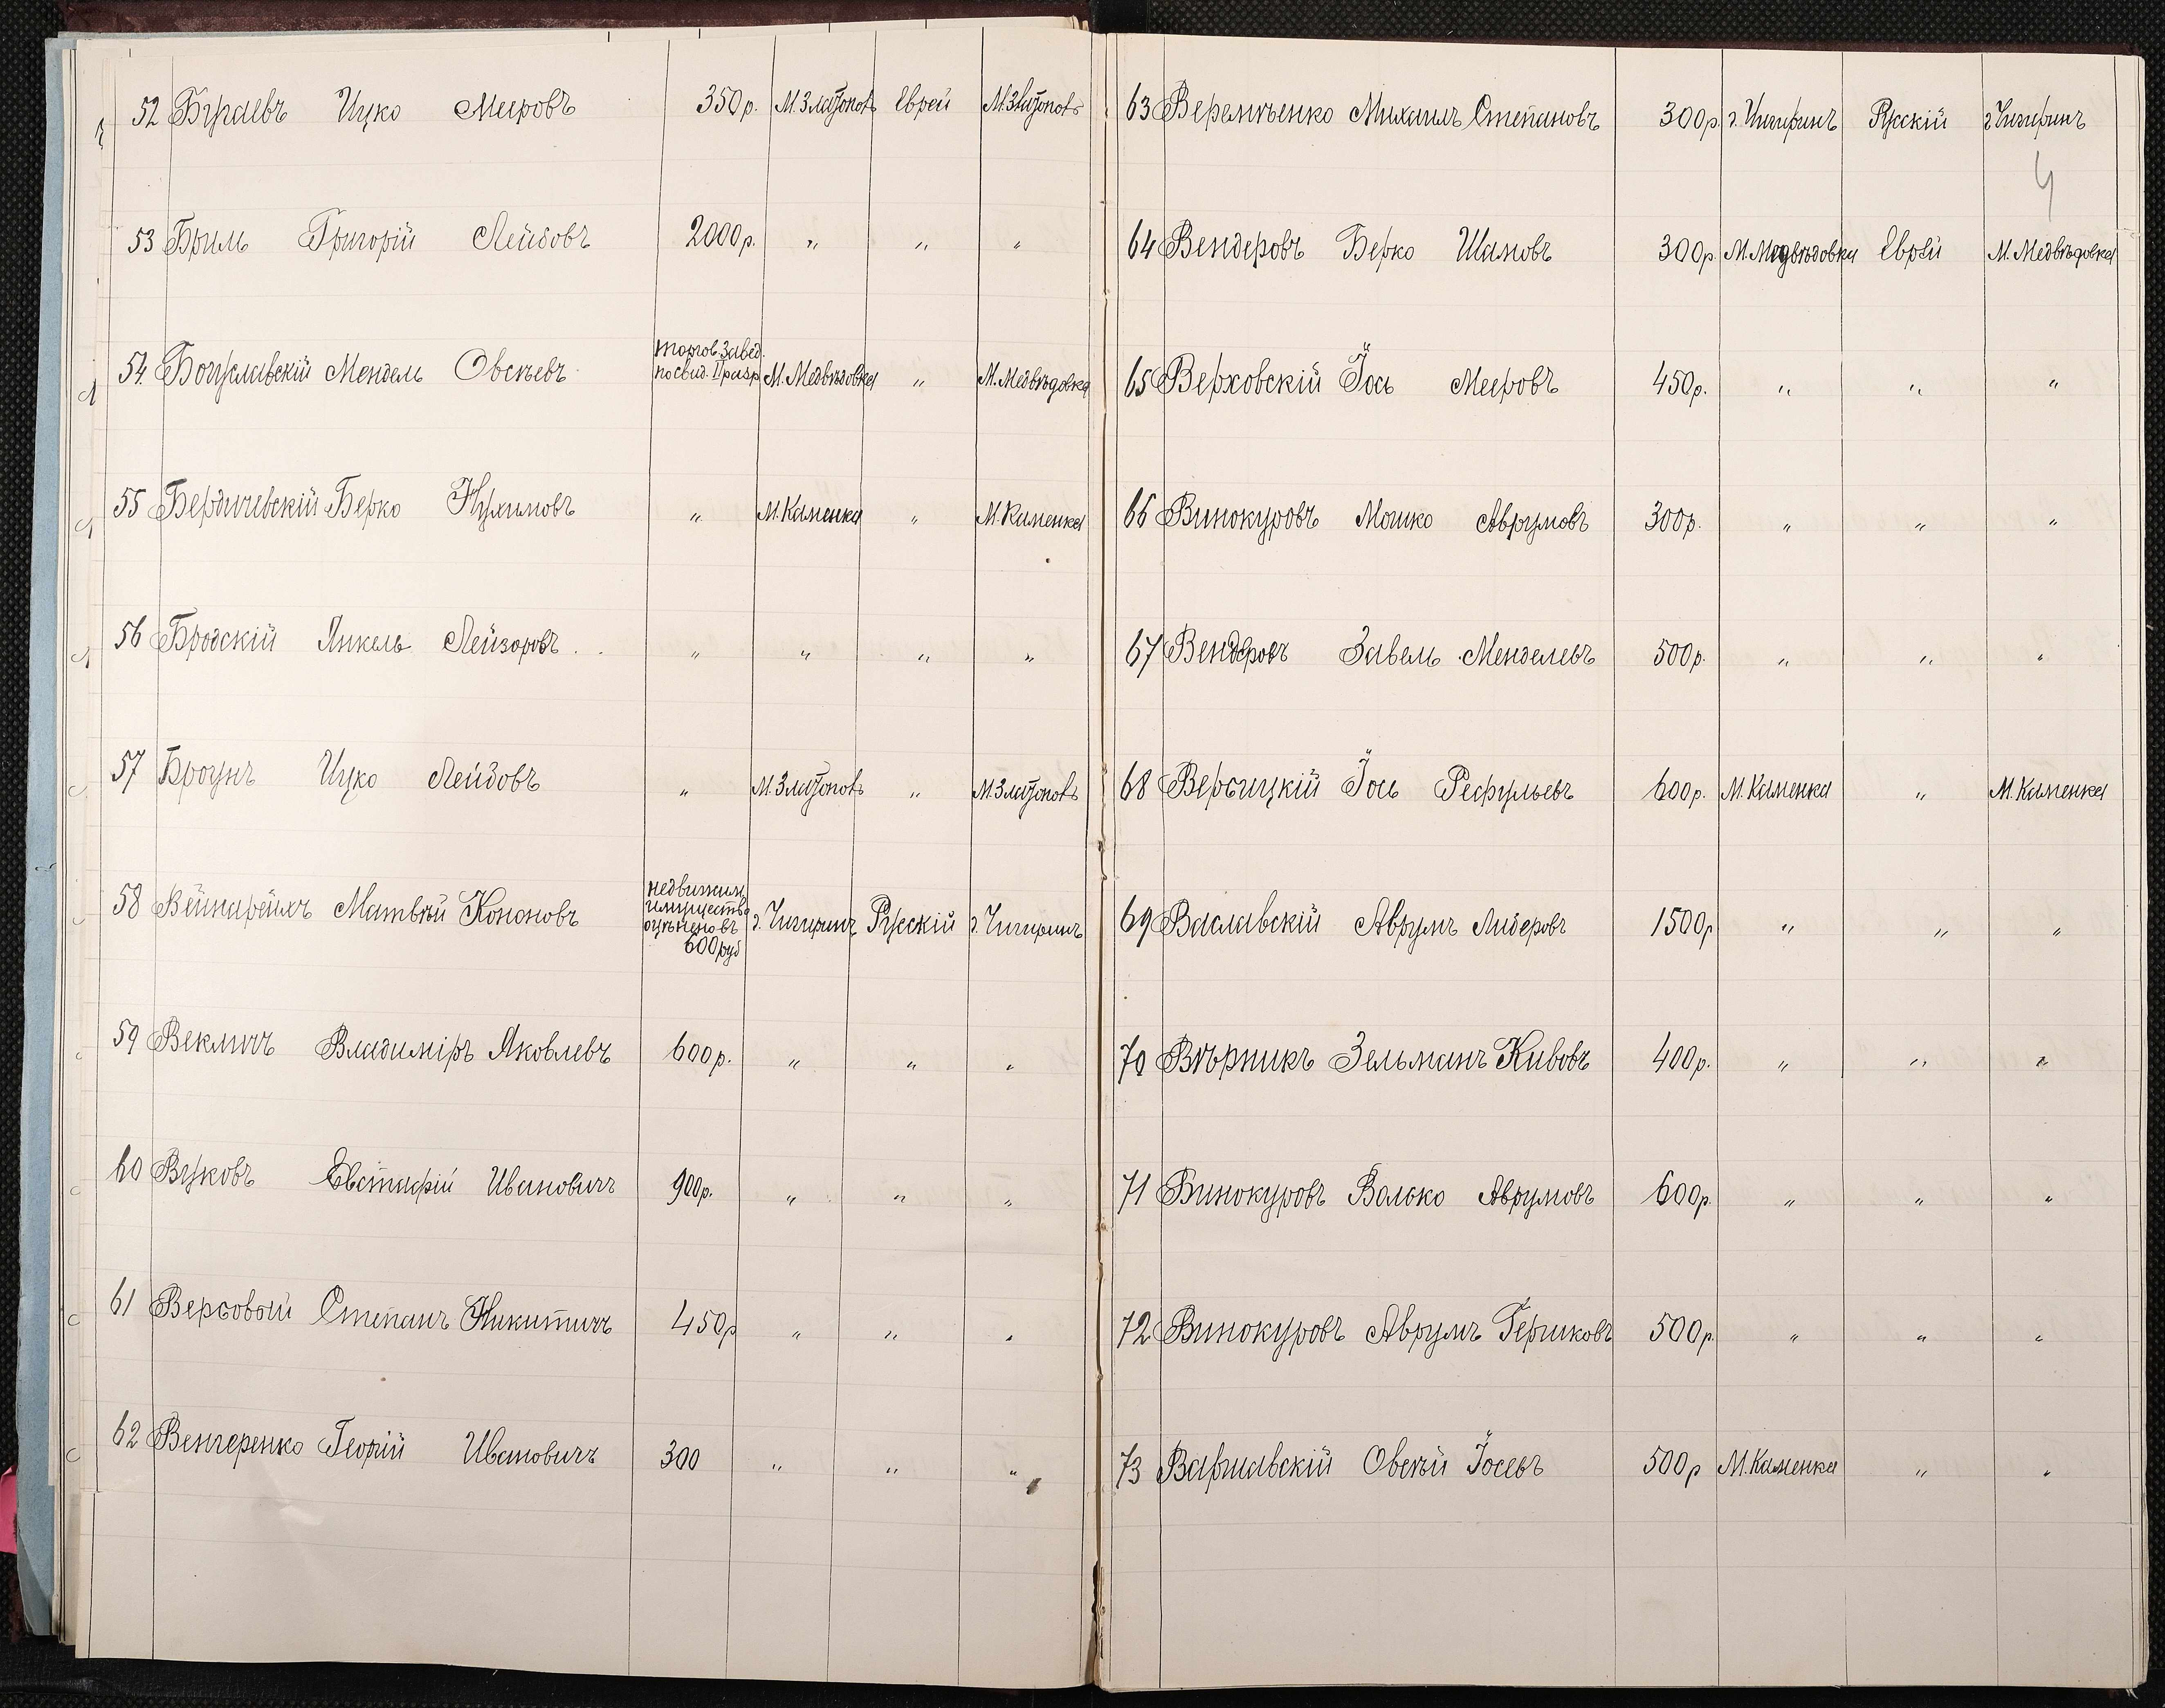 52 Бураевъ Ицко Мееровъ 350р. М. Златополь Еврей М. Златополь
53 Бриль Григорій Лейбовъ 2000р. " " "
54. Богуславскій Мендель Овсѣевъ торгов. завед. по свид. II разр. М. Медвѣдовка " М. Медвѣдовка
55 Бердичевскій Берко Нухимовъ " М. Каменка " М. Каменка
56 Бродскій Янкель Лейзоровъ " " " "
57 Броунъ Ицко Лейбовъ " М. Златополь " М. Златополь
58 Матвѣй Кононовъ недвижим. имущество оцѣнен. въ 600 руб г. Чигиринъ Русскій г. Чигиринъ
59 Векличъ Владиміръ Яковлевъ 600р. " " "
60 Вуковъ Евстафій Ивановичъ 900р. " " "
61 Вербовый Степанъ Никитичъ 450р " " "
62 Венгеренко Георгій Ивановичъ 300 " " "
4
63 Веремѣенко Михаилъ Степановъ 300р. г. Чигиринъ Русскій г. Чигиринъ
64 Вендеровъ Берко Шамовъ 300р. М. Медвѣдовка Еврей М. Медвѣдовка
65 Верховскій Іось Мееровъ 450р. " " "
66 Винокуровъ Мошко Аврумовъ 300р. " " "
67 Вендеровъ Завель Менделевъ 500р. " " "
68 Вербицкій Іось Рефульевъ 600р. М. Каменка " М. Каменка
69 Ваславскій Аврумъ Лидеровъ 1500р " " "
70 Вѣрникъ Зельманъ Кивовъ 400р. " " "
71 Винокуровъ Волько Аврумовъ 600р. " " "
72 Винокуровъ Аврумъ Гершковъ 500р. " " "
73 Варшавскій Овсѣй Іосевъ 500р М. Каменка " "